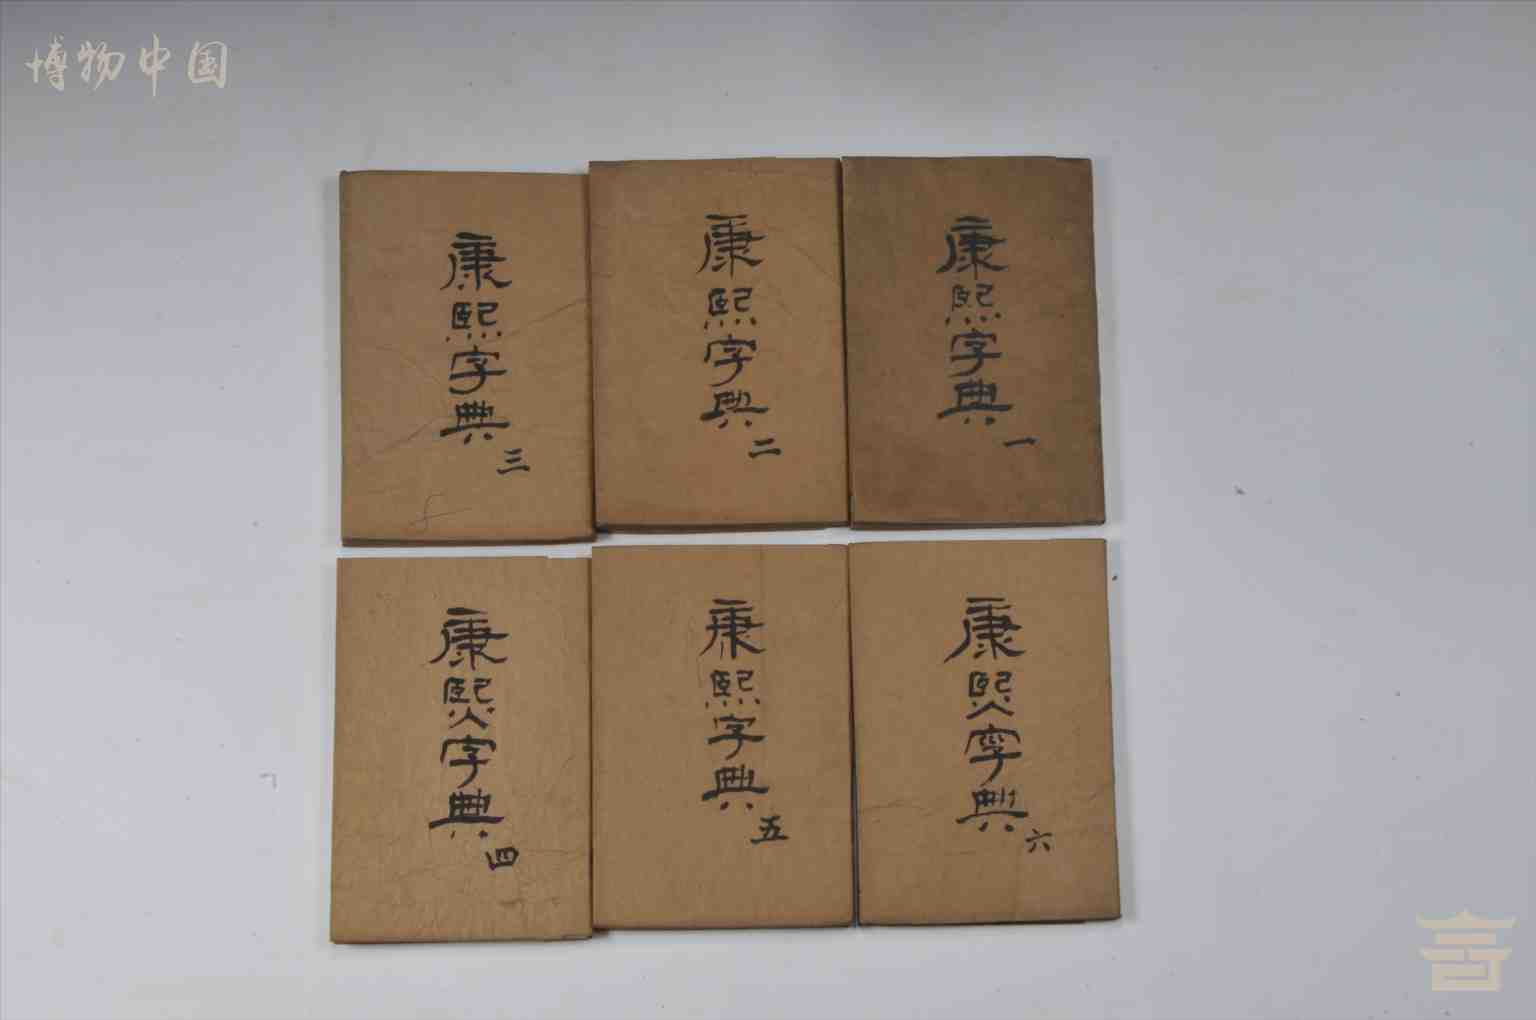 博物中国
康熙字典
一
康熙字典
二
康熙字典
三
康熙字典
四
康熙字典
五
康熙字典
六